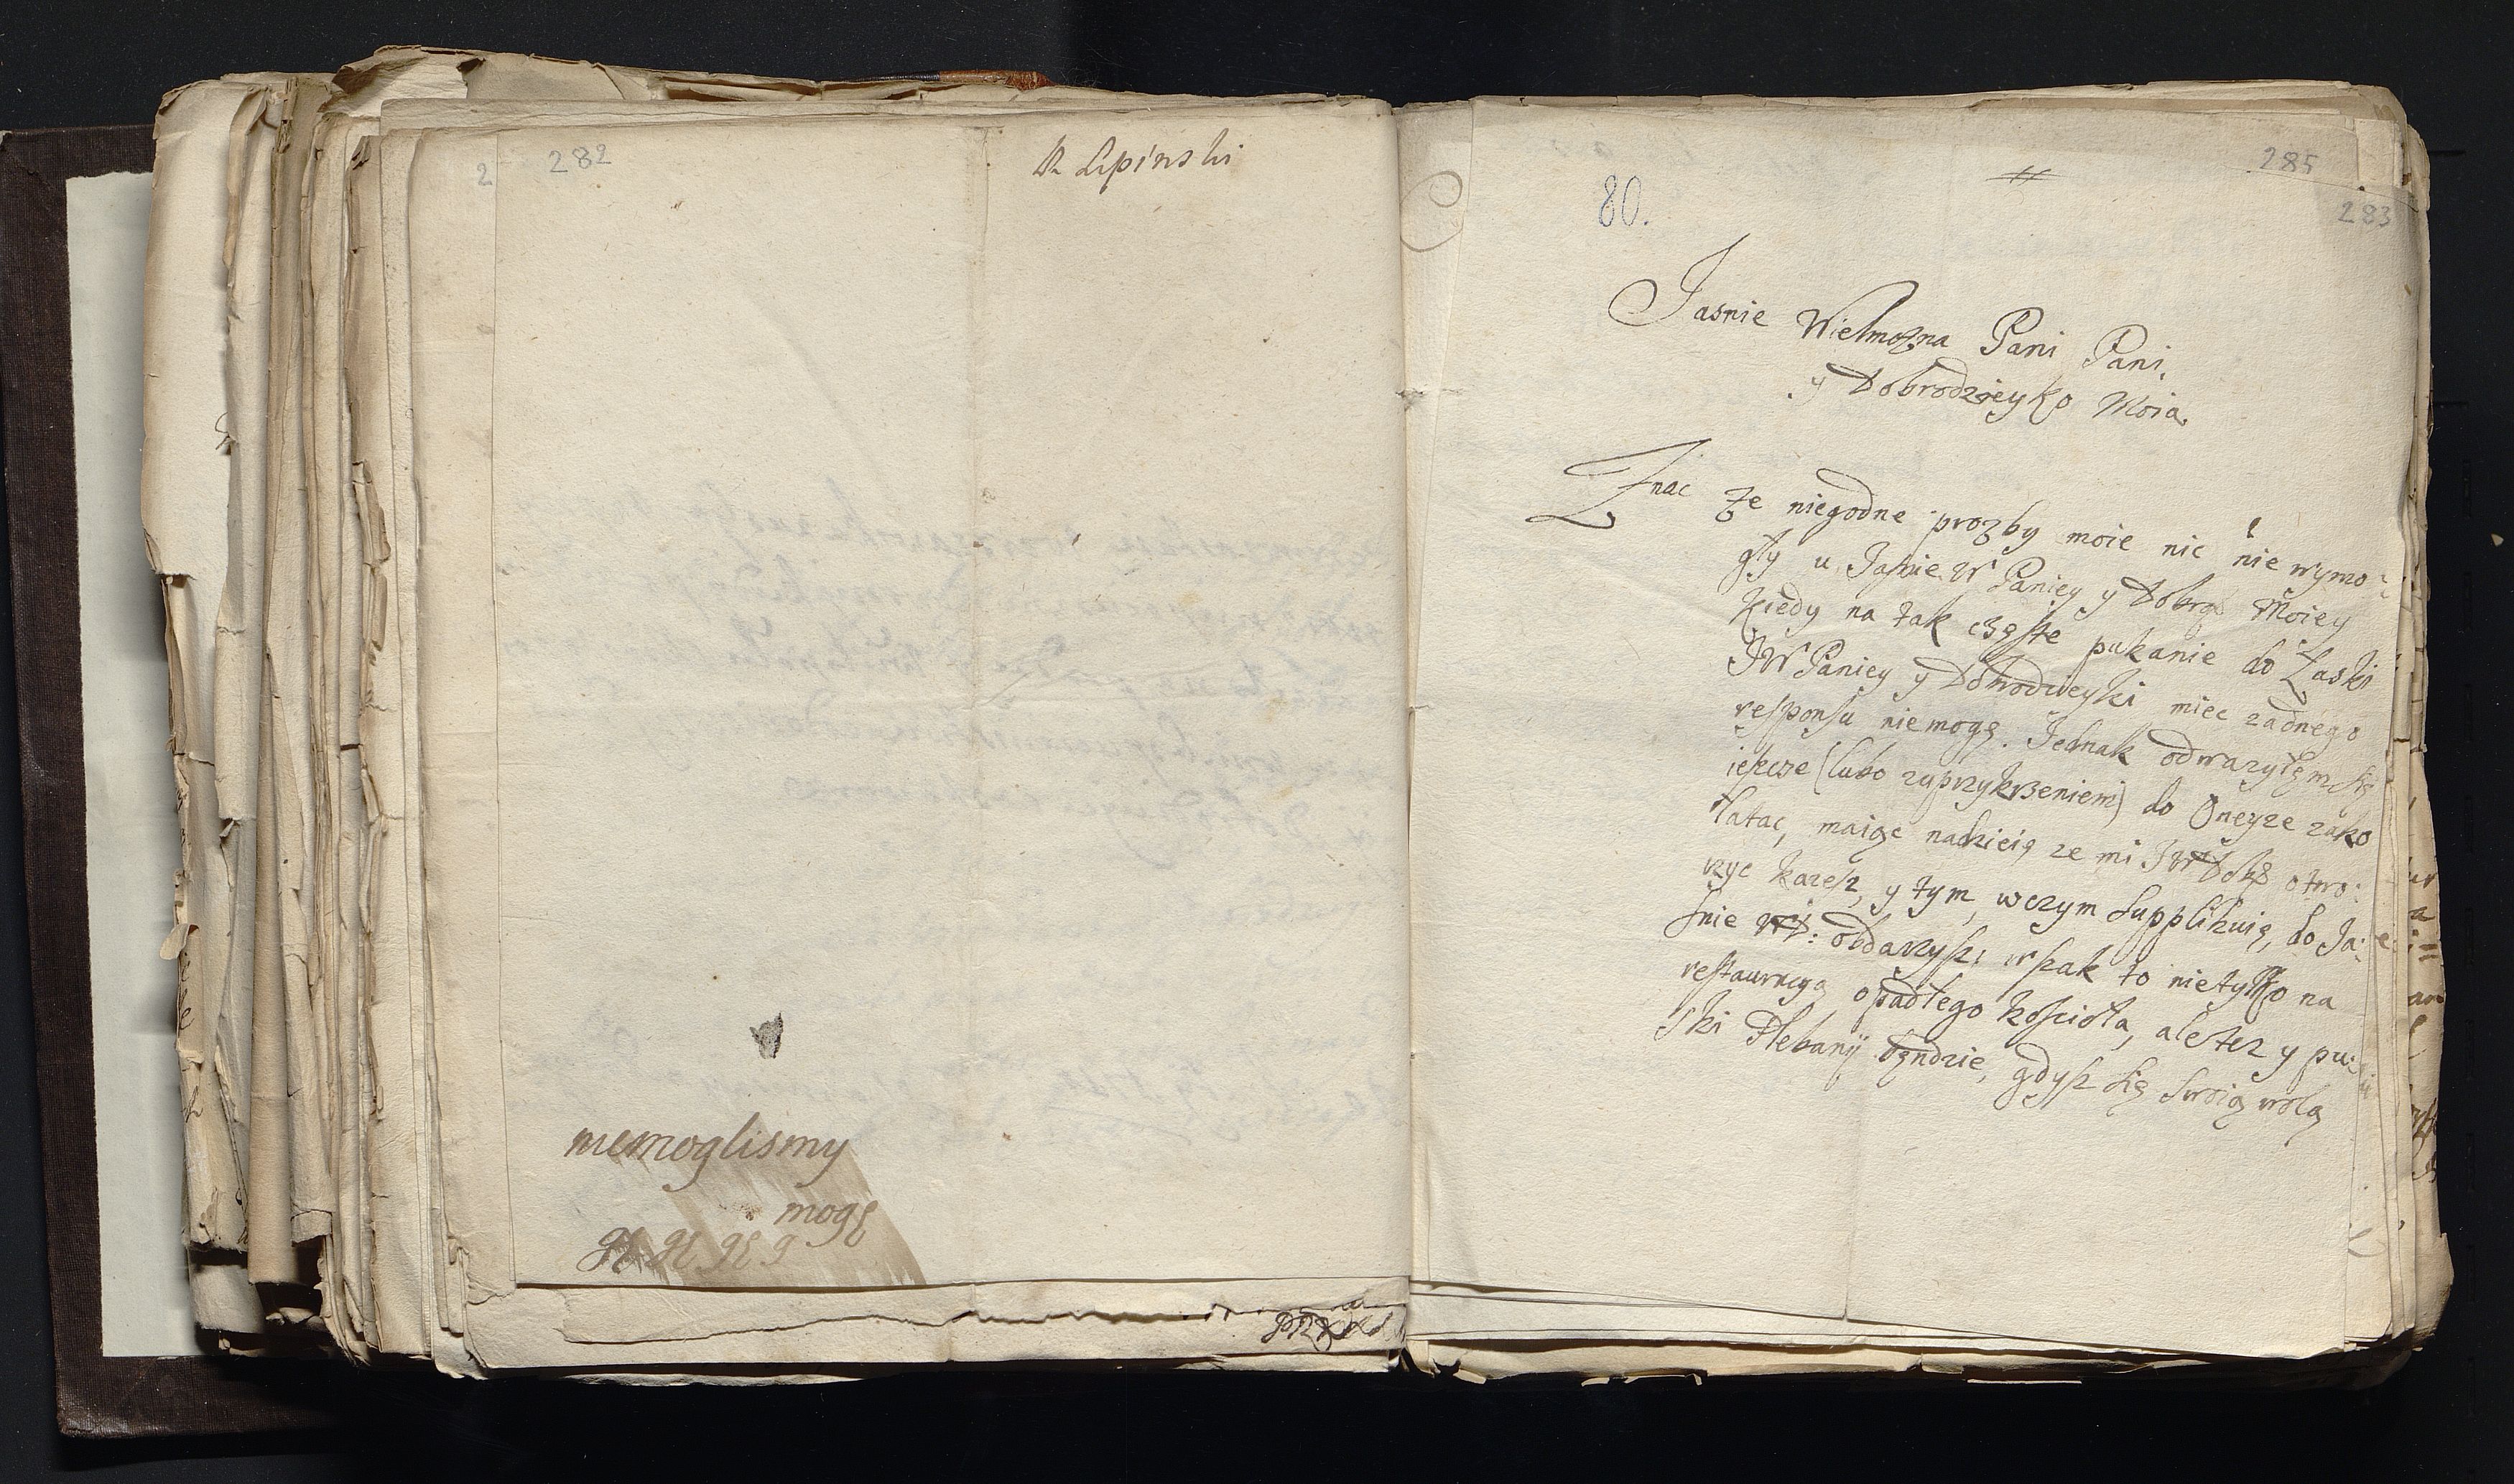 2 282
Lipinski
niemoglismy
mogę
285
283
80.
Jasnie Wielmozna Pani Pani
y Dobrodzieyko Moia
Znac ze niegodne prozby moie nic nie wymo:
gły u Jasnie W Paniey y Dobrą Moiey
kiedy na tak częste pukanie do Łaski
JW Paniey y Dobrodzieyki miec zadnego
responsu niemogę. Jednak odwazyłęm się
ieszcze (lubo zuprzykrzeniem) do Oneyze zako
łatac, maiąc nadzieię ze mi JW otwo:
rzyc kazesz, y tym, wczym supplikuię, do Ja:
snie obdarzysz: wszak to nietylko na
restauracyą opadłego kościoła, ale tez y pu:
ski Plebanij będzie, gdysz się swoią wolą